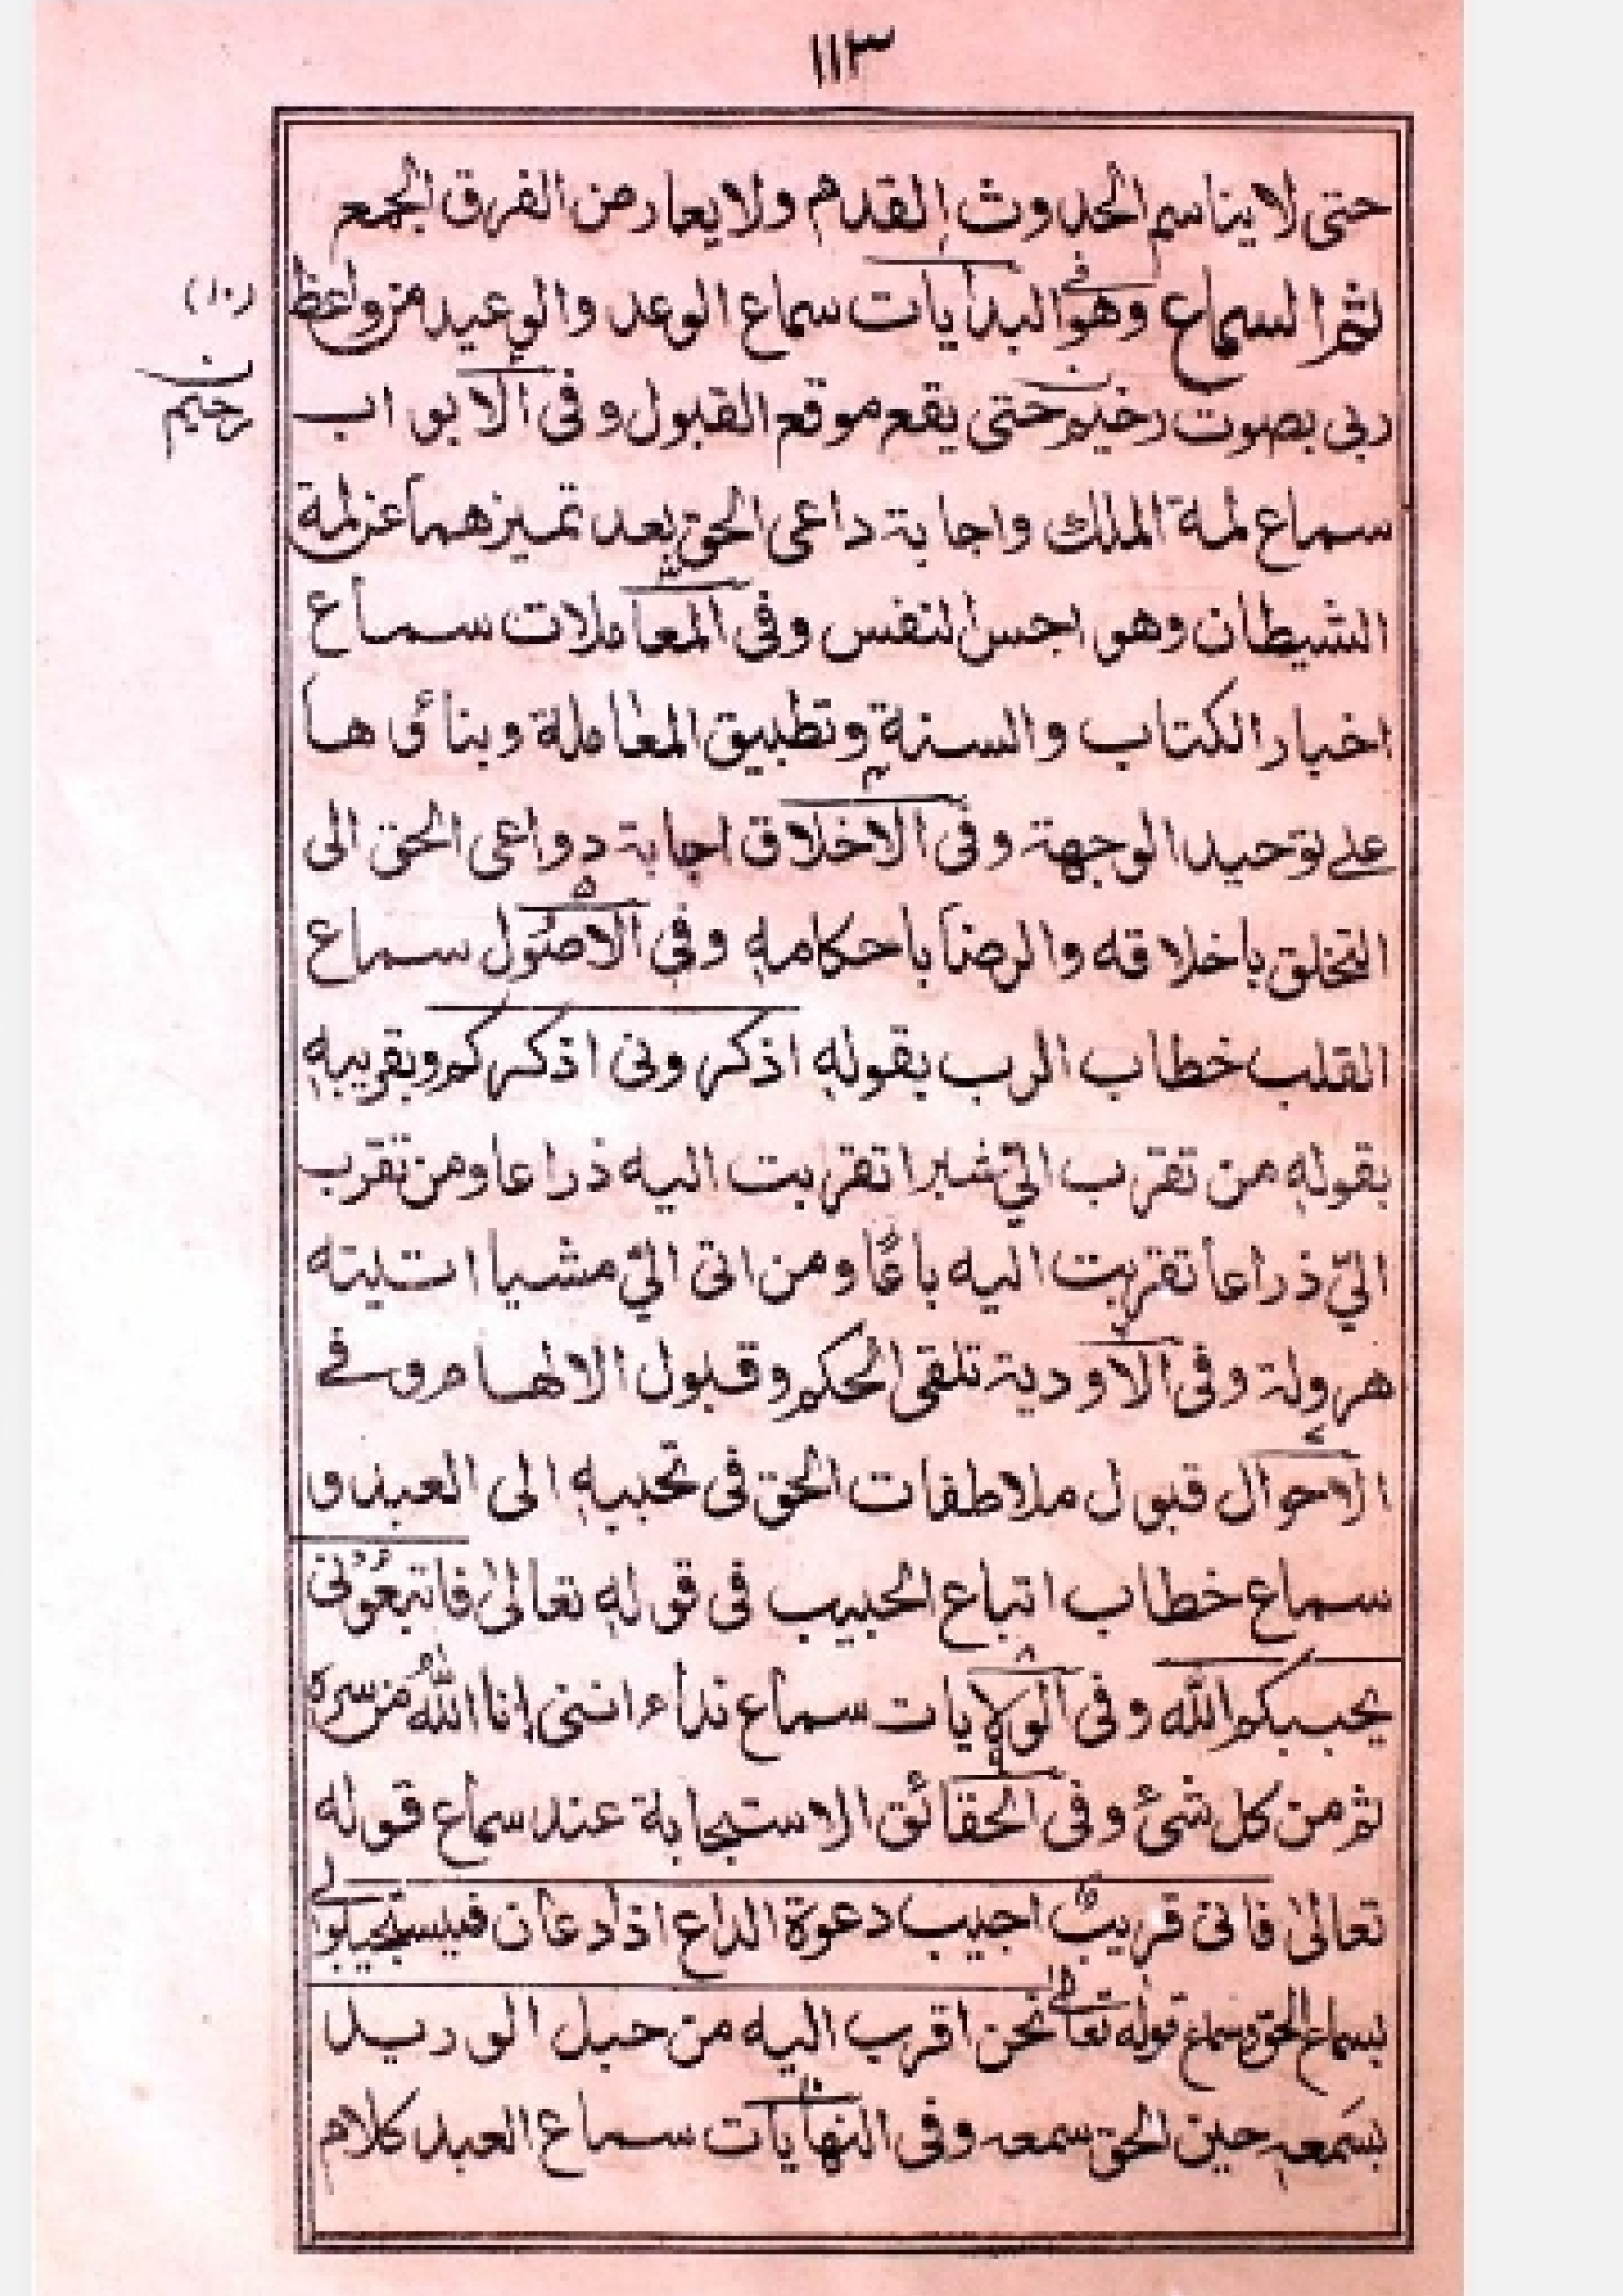 ١١٣
حتى لا يناسم الحدوث القدم ولا يعارض الفرق الجمع
ثم السماع وهو فی البدایات سماع الوعد والوعید من واعظ
(١٠)
ربی بصوت رخیم حتی یقع موقع القبول وفی الابواب
ن
رحیم
سماع لمة الملك واجابة داعی الحق بعد تمیزهما عن لمة
الشیطان وهواجس النفس وفی المعاملات سماع
اخبار الکتاب والسنة وتطبیق المعاملة وبناؤها
علے توحید الوجهة وفی الاخلاق اجابة دواعی الحق الی
التخلق باخلاقه والرضا باحکامه وفی الاصول سماع
القلب خطاب الرب بقوله اذکرونی اذکرکم وبقریبه
بقوله من تقرب الیّ شبرا تقربت الیه ذراعا ومن تقرب
الیّ ذراعا تقربت الیه باعًا ومن اتی الیّ مشیا اتیته
هرولة وفی الاودیة تلقی الحکم وقبول الالهام وفے
الاحوال قبول ملاطفات الحق فی تحببه الی العبد و
سماع خطاب اتباع الحبیب فی قوله تعالیٰ فاتبعونی
یحببکم الله وفی الولایات سماع نداء اننی انا اللهُ من سره
ثم من کل شیٔ وفی الحقائق الاستجابة عند سماع قوله
تعالیٰ فانی قریبٌ اجیب دعوة الداع اذا دعان فلیستجیبوا لے
بسماع الحق وسماع قوله تعالے نحن اقرب الیه من حبل الورید
بسَمعه حین الحق سمعه وفی النهایات سماع العبد کلام